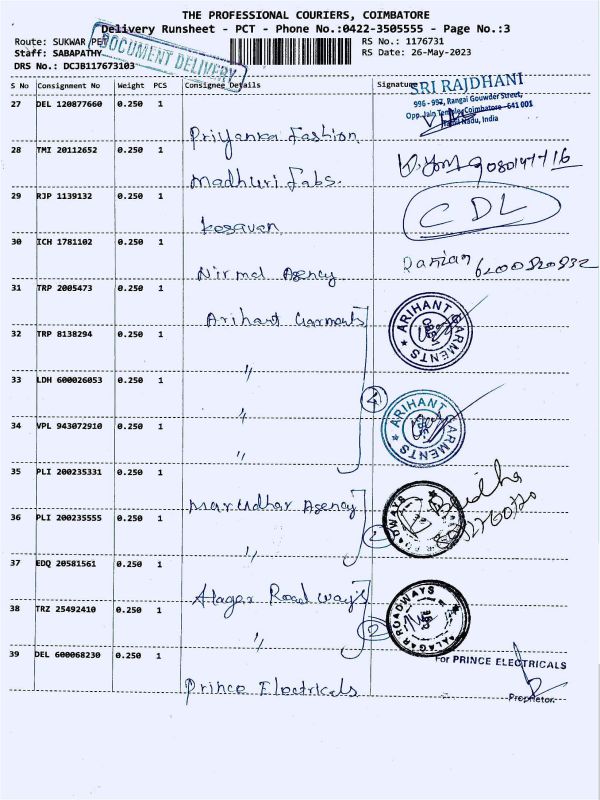 THE PROFESSIONAL COURIERS, COIMBATORE
Delivery Runsheet - PCT - Phone No.:0422-3505555 - Page No.:3
Route: SUKWAR PET
RS No.: 1176731
Staff: SABAPATHY
RS Date: 26-May-2023
DRS No.: DCJB117673103
DOCUMENT DELIVERY
S No Consignment No Weight PCS Consignee Details Signature
SRI RAJDHANI
996 - 997, Rangai Gouwder Street,
Opp. Jain Temple, Coimbatore - 641 001
Tamil Nadu, India
27 DEL 120877660 0.250 1
Priyanka Fashion
28 TMI 20112652 0.250 1
Madhuri Fabs.
29 RJP 1139132 0.250 1
CDL
Kesavan
30 ICH 1781102 0.250 1
Nirmal Agency
31 TRP 2005473 0.250 1
Arihant Garments
ARIHANT GARMENTS
32 TRP 8138294 0.250 1
"
33 LDH 600026053 0.250 1
4
"
ARIHANT GARMENTS
34 VPL 943072910 0.250 1
"
35 PLI 200235331 0.250 1
Marudhar Agency
36 PLI 200235555 0.250 1
"
37 EDQ 20581561 0.250 1
Alagar Road ways
38 TRZ 25492410 0.250 1
2
ALAGAR ROADWAYS
"
39 DEL 600068230 0.250 1
For PRINCE ELECTRICALS
Prince Electricals
Proprietor.